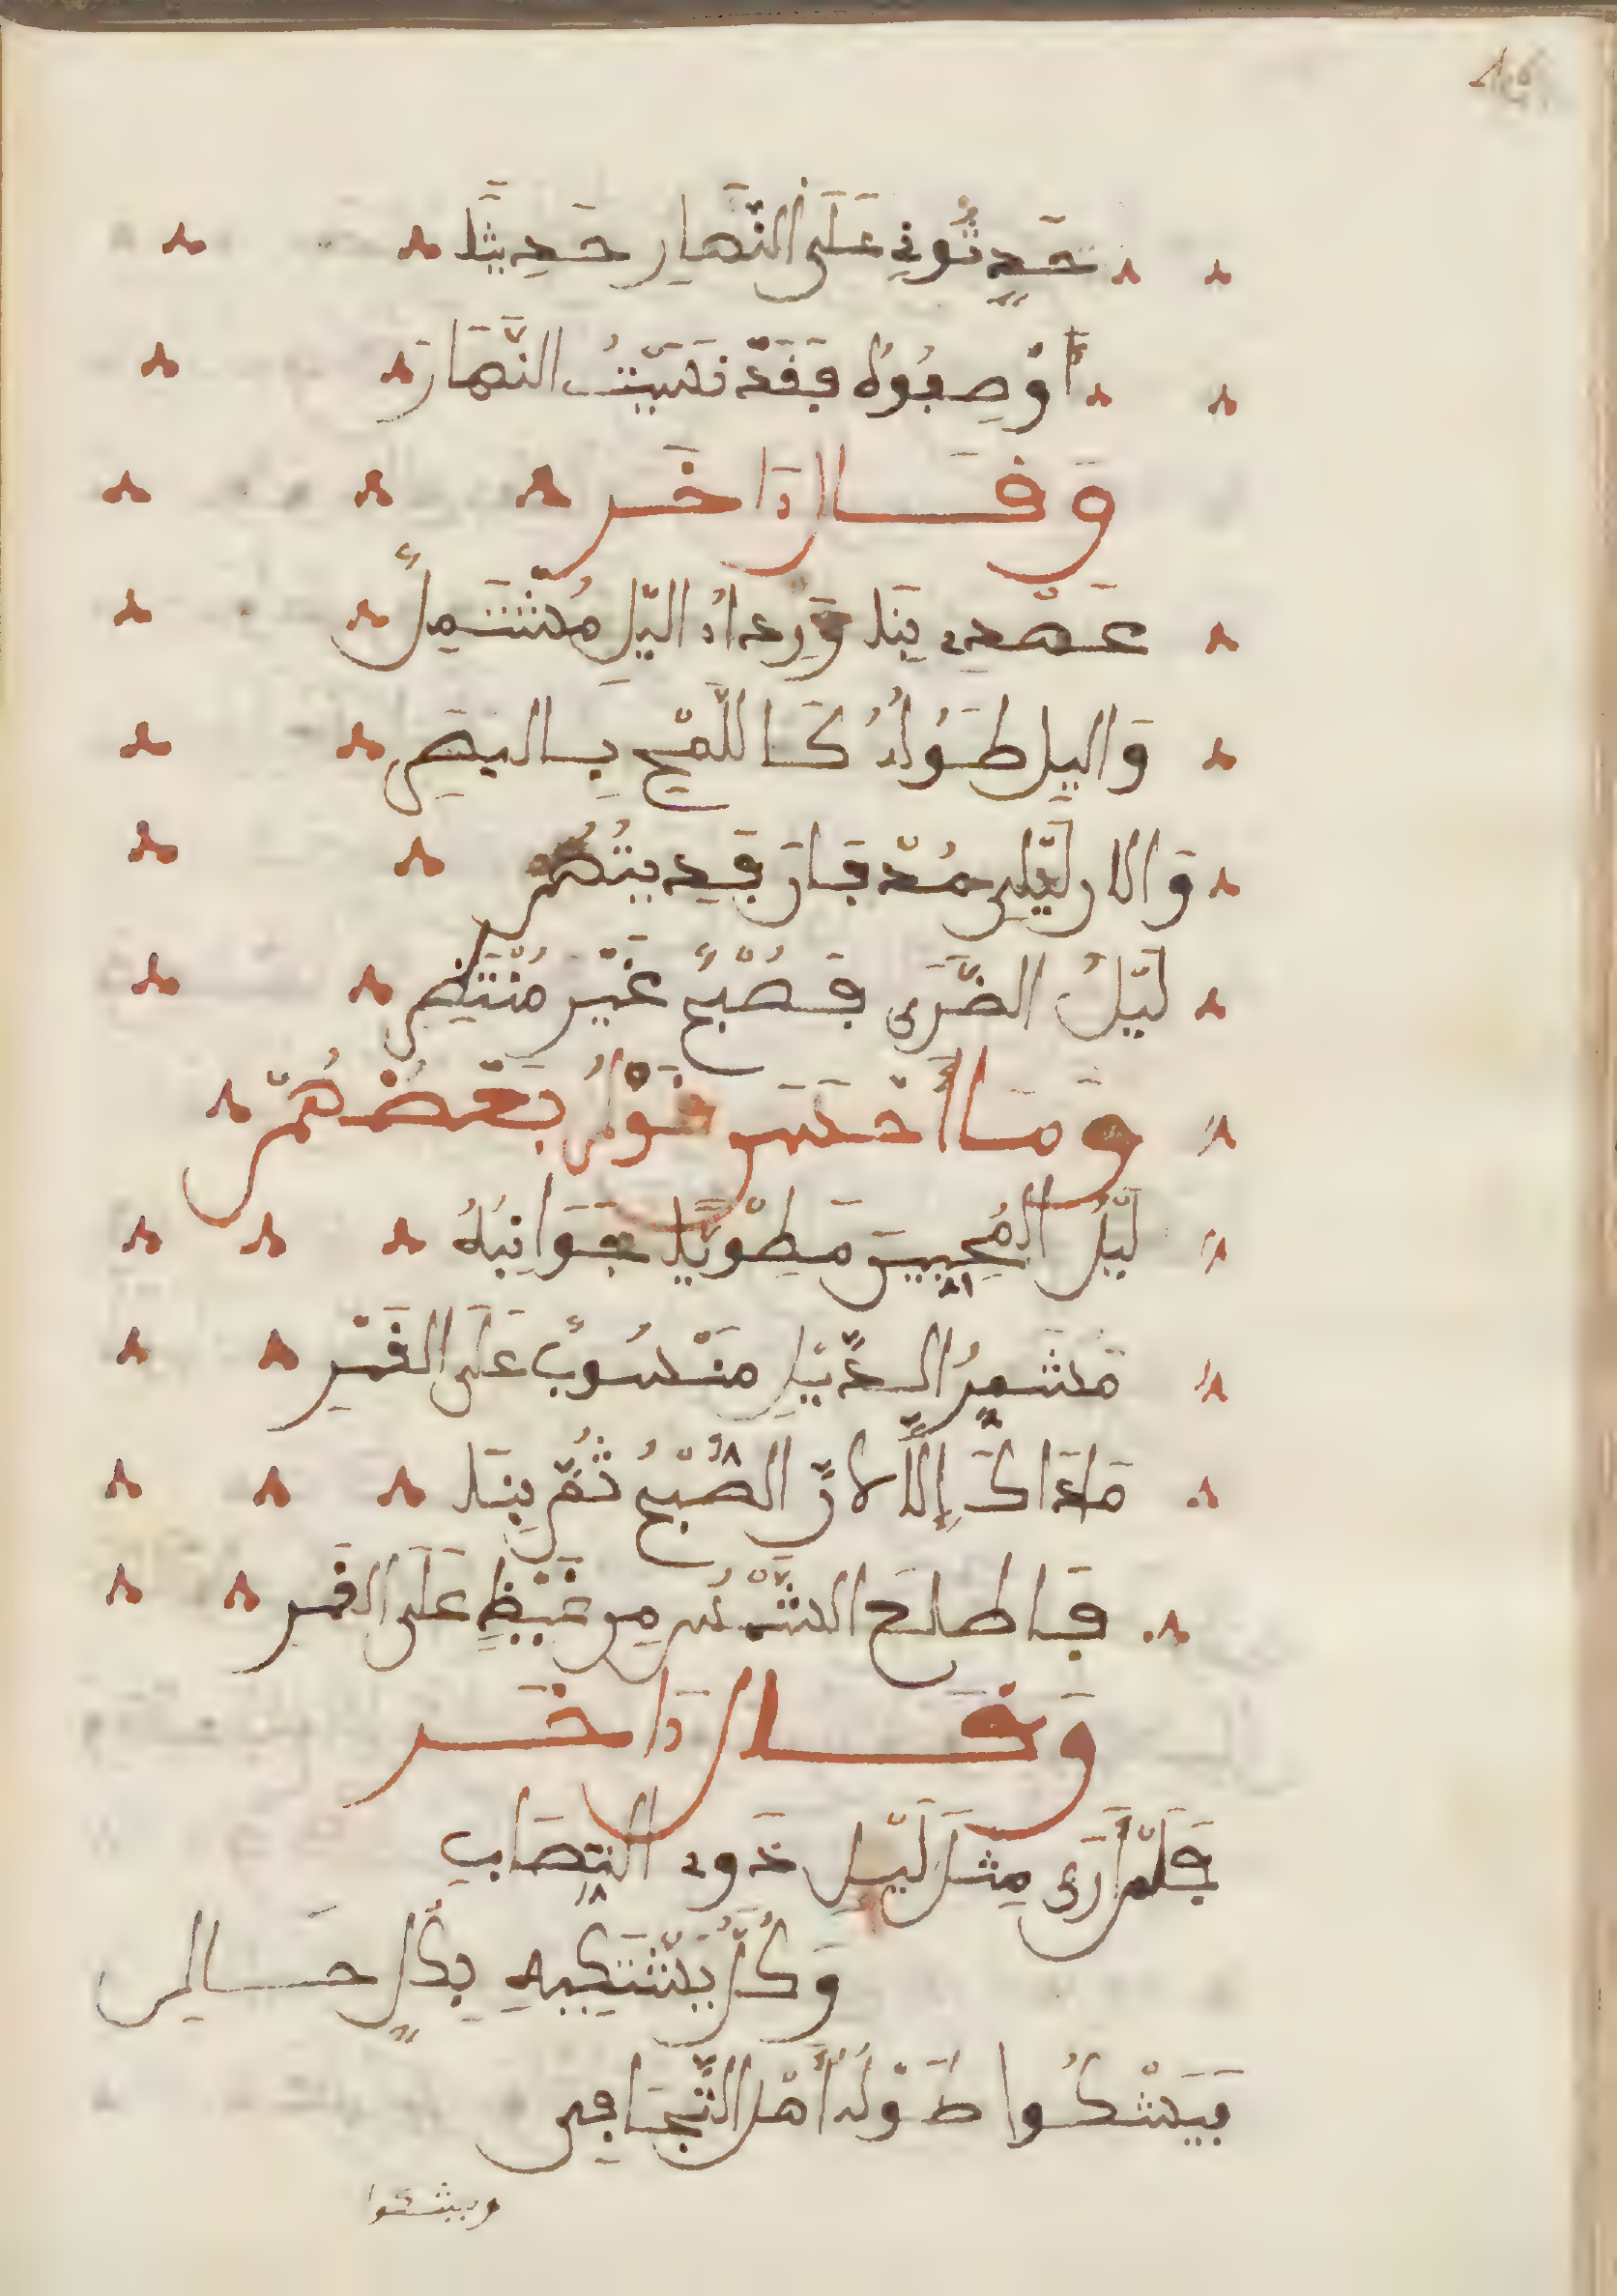 حَدِّثُونِي عَلَى النَّهَارِ حَدِيثًا
أَوْ صِفُوهُ فَقَدْ نَسِيتُ النَّهَارَ
وَقَالَ ءَاخَر
عَهْدِي بِنَا وَرِدَاءُ الَّيْلِ مُشْتَمِلٌ
وَالَّيْلُ طُولُهُ كَاللَّمْحِ بِالبَصَرِ
وَالان لَيْلِي مُذْ
لَيْلُ الضَّرِيرِ فَصُبْحٌ غَيْرُ مُنْتَظَرِ
وَمَا أَحْسَنَ قَوْلُ بَعْضُهُمْ
لَيْلُ المُحِبِّينَ مَطْوِيًّا جَوَانِبُهُ
مُشَمِّرُ الذَّيْلِ مَنْسُوبٌ عَلَى القِصَرِ
مَا ذَاكَ إِلَّا لِأَنَّ الصُّبْحَ ثُمَّ بِنَا
فَاطْلَعَ الشَّمْسَ مِنْ غَيْظٍ عَلَى القَمَرِ
وَقَالَ ءَاخَر
فَلَمْ أَرَى مِثْلَ لَيْلِ ذَوِي التَّصَابِي
وَكُلٌّ يَشْتَكِيهِ بِكُلِّ حَالِ
فَيَشْكُوا طُولَهُ أَهْلُ التَّجَافِي
ويشكوا